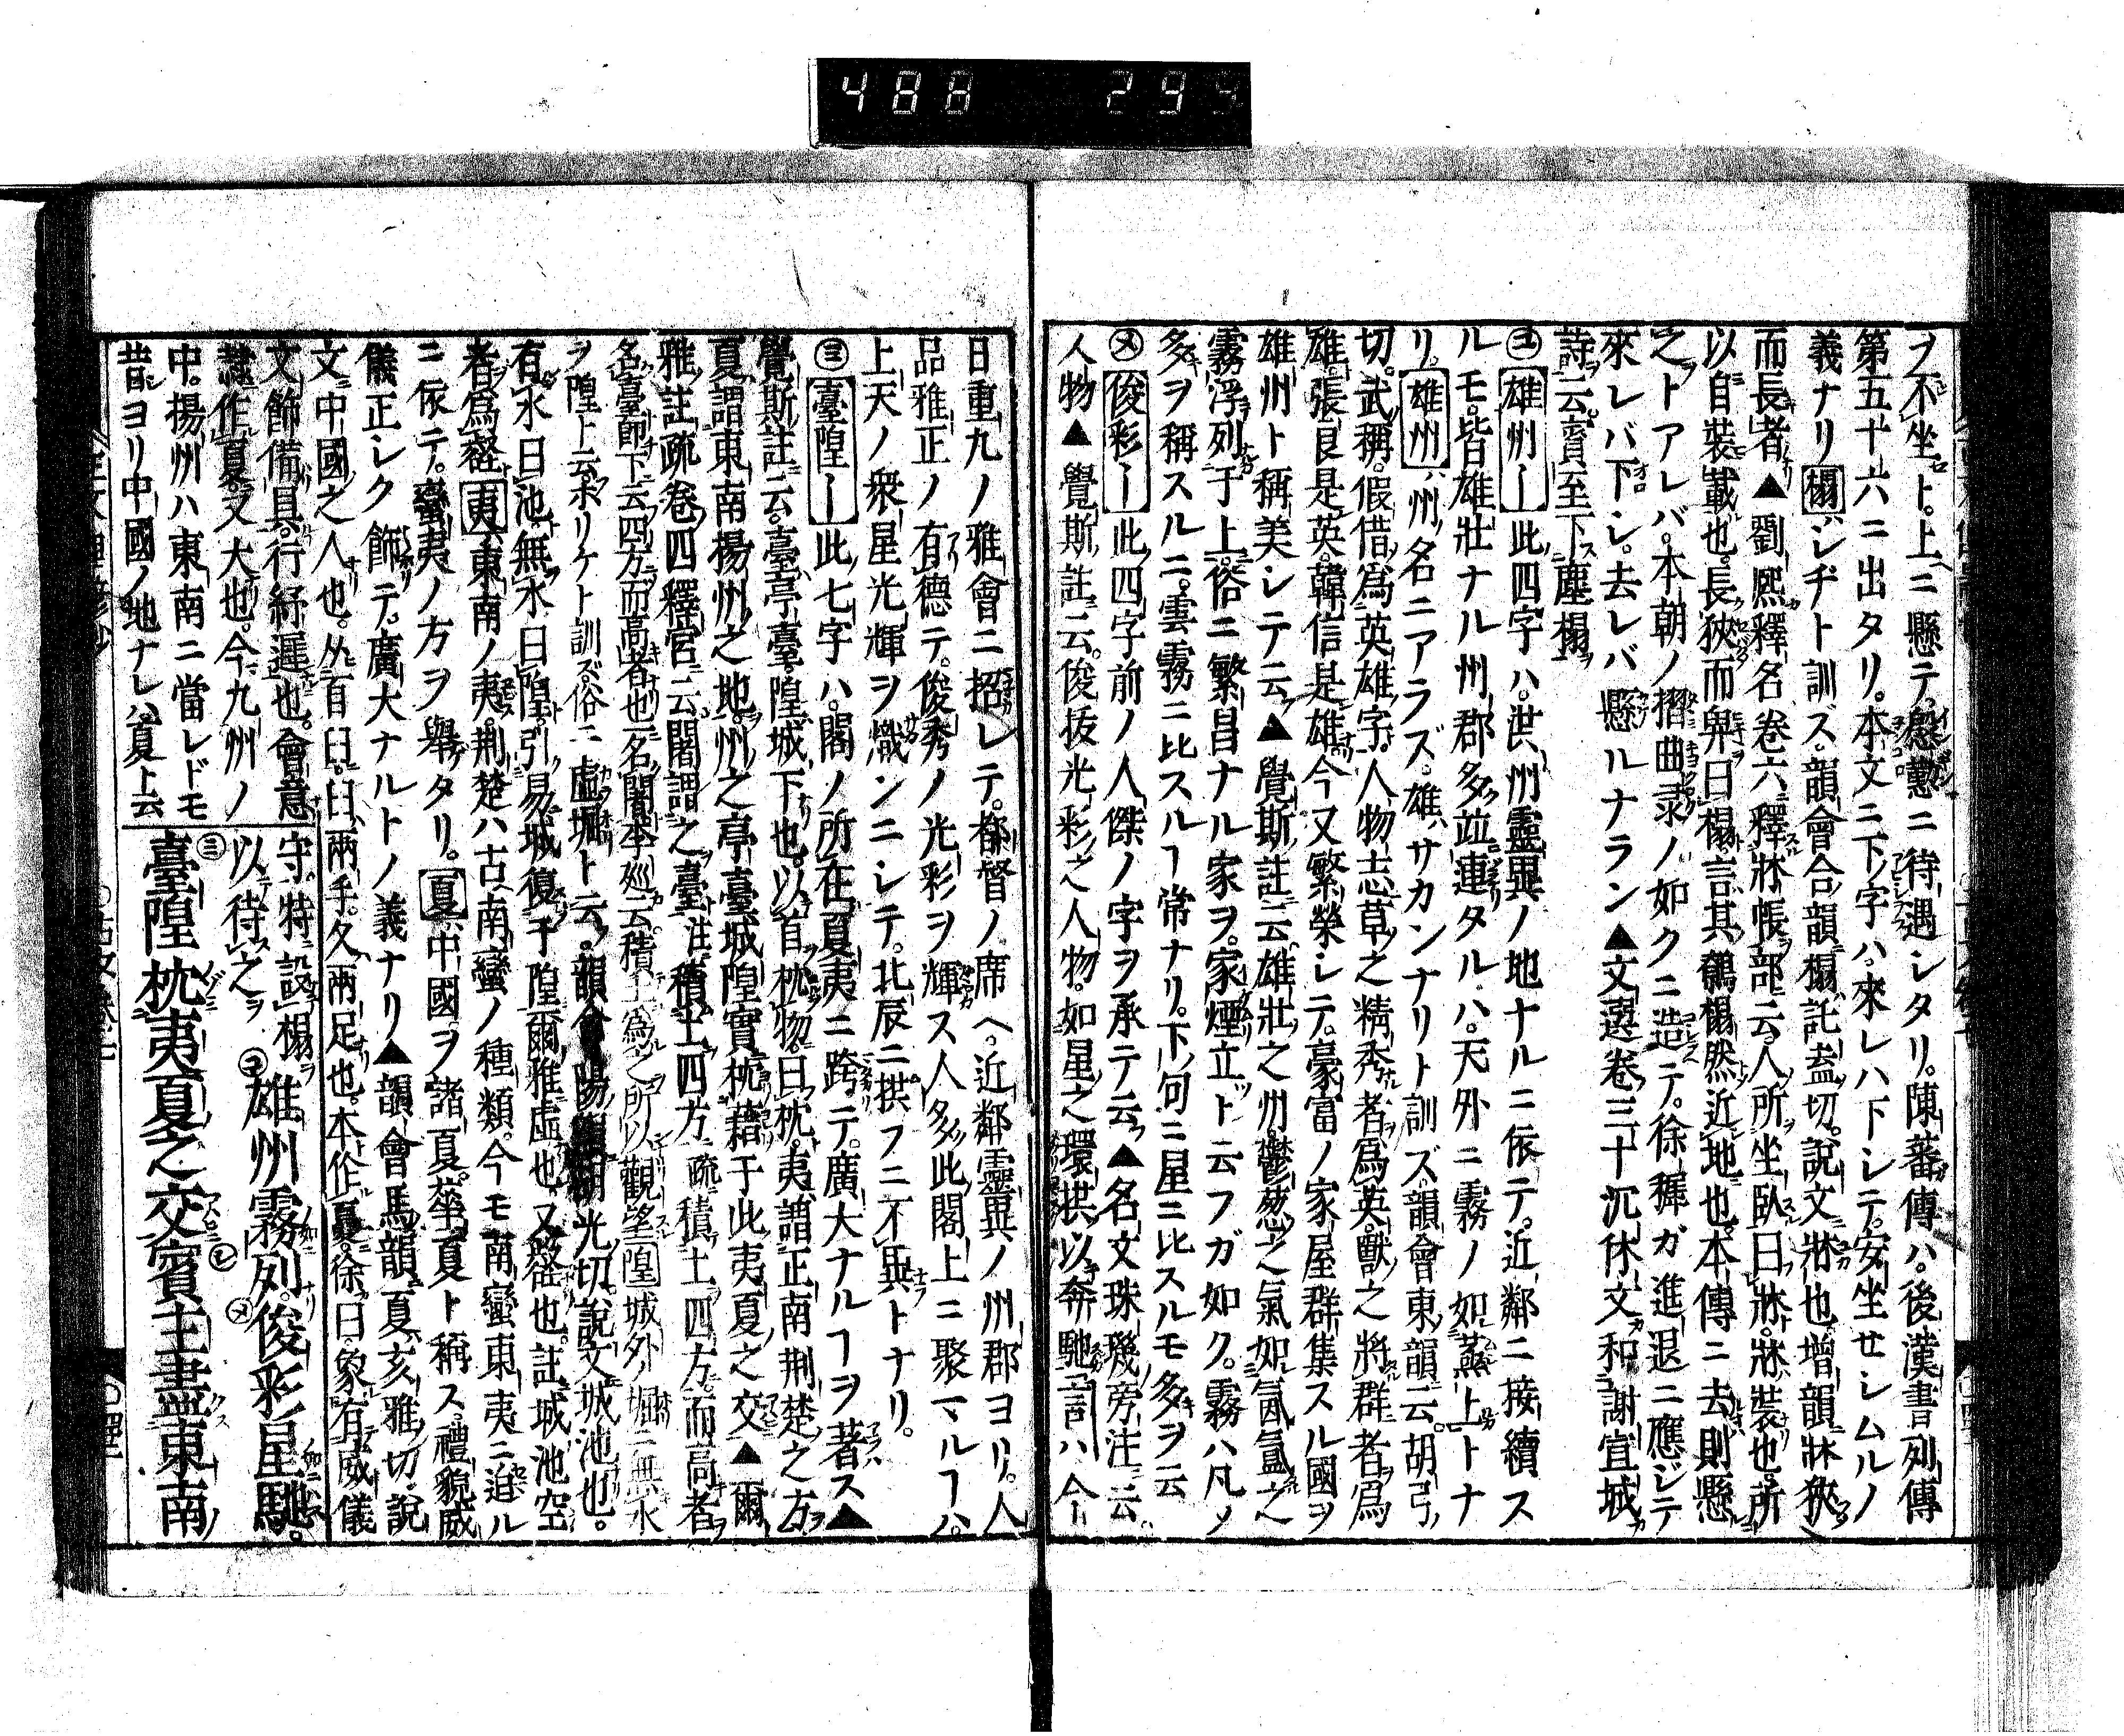 488 299
ヲ不坐ト。上ニ懸テ。慇懃ニ待遇シタリ。陳蕃傳ハ。後漢書列傳
第五十六ニ出タリ。本文ニ下字ハ。來レハ下シテ。安坐セシムルノ
義ナリ榻ハシヂト訓ズ。韻會合韻榻託盍切。說文牀也。增韻牀狹
而長者▲劉熈釋名卷六釋牀帳部云。人所坐臥曰牀。牀裝也。所
以自裝載也。長狹而卑曰榻。言其鶴榻然近地也。本傳ニ去則懸
之トアレバ。本朝ノ摺曲彔ノ如クニ造テ。徐穉ガ進退ニ應ジテ
來レバ下シ。去レバ懸ルナラン▲文選卷三十沉休文和謝宣城
詩云。賓至下塵榻
ユ雄州ー此四字ハ。洪州靈異ノ地ナルニ依テ。近鄰ニ接續ス
ルモ。皆雄壯ナル州郡多竝連タルハ。天外ニ霧ノ如蒸上トナ
リ。雄州ハ州名ニアラズ。雄ハサカンナリト訓ズ。韻會東韻云。胡弓
切。武稱。假借爲英雄字。人物志草之精秀者爲英。獸之將群者爲
雄。張良是英。韓信是雄。今又繁榮シテ。豪富ノ家屋群集スル國ヲ
雄州ト稱美シテ云▲覺斯註云。雄壯之州。鬱葱之氣如氤氳之
霧浮列于上。俗ニ繁昌ナル家ヲ。家煙立ト云フガ如ク。霧ハ凡メ
多ヲ稱スルニ。雲霧ニ比スルヿ常ナリ。下句ニ星ニ比スルモ多ヲ云
メ俊彩ー此四字前ノ人傑ノ字ヲ承テ云▲名文珠璣旁注云
人物▲覺斯註云。俊抜光彩之人物。如星之環拱以奔馳言ハ今
日重九ノ雅會ニ招レテ。都督ノ席ヘ。近鄰靈異ノ州郡ヨリ。人
品雅正ノ有德テ。俊秀ノ光彩ヲ輝ス人多此閣上ニ聚マルヿハ。
上天ノ衆星光輝ヲ熾ンニシテ。北辰ニ拱フニ不異トナリ。
ミ臺隍ー此七字ハ。閣ノ所在夏夷ニ跨テ。廣大ナルヿヲ著ス▲
覺斯註云。臺亭臺。隍城下也。以首枕物。曰枕。夷謂正南荆楚之方
夏謂東南揚州之地。州之亭臺城隍實枕藉于此夷夏之交▲爾
雅註疏卷四釋宮云闍謂之臺注積土四方疏積土四方。而高者
名臺卽下云四方而高者也一名闍李廵云積土爲之所以觀望隍城外堀ニ無水
ヲ隍ト云ホリケト訓ズ俗ニ虛堀ト云。韻會陽韻胡光切。說文城池也。
有水曰池無水曰隍。引易城復于隍爾雅虛也又壑也。註城池空
者爲壑夷東南ノ夷。荆楚ハ古南蠻ノ種類。今モ南蠻東夷ニ迫ル
ニ依テ。蠻夷ノ方ヲ舉タリ。夏中國ヲ諸夏。華夏ト稱ス。禮貌威
儀正シク飾テ。廣大ナルトノ義ナリ▲韻會馬韻夏亥雅切。說
文ニ中國之人也。从百臼。臼兩手。夊兩足也。本作夏。徐曰。象有威儀
文飾備具。行紓遲也。會意
隷作夏又大也。今九州ノ
中。揚州ハ東南ニ當レドモ
昔ヨリ中國ノ地ナレハ夏ト云
守。特設榻
以待之ヲユ雄州霧列。メ俊彩星馳。
ミ臺隍枕夷夏之交シ賓主盡東南